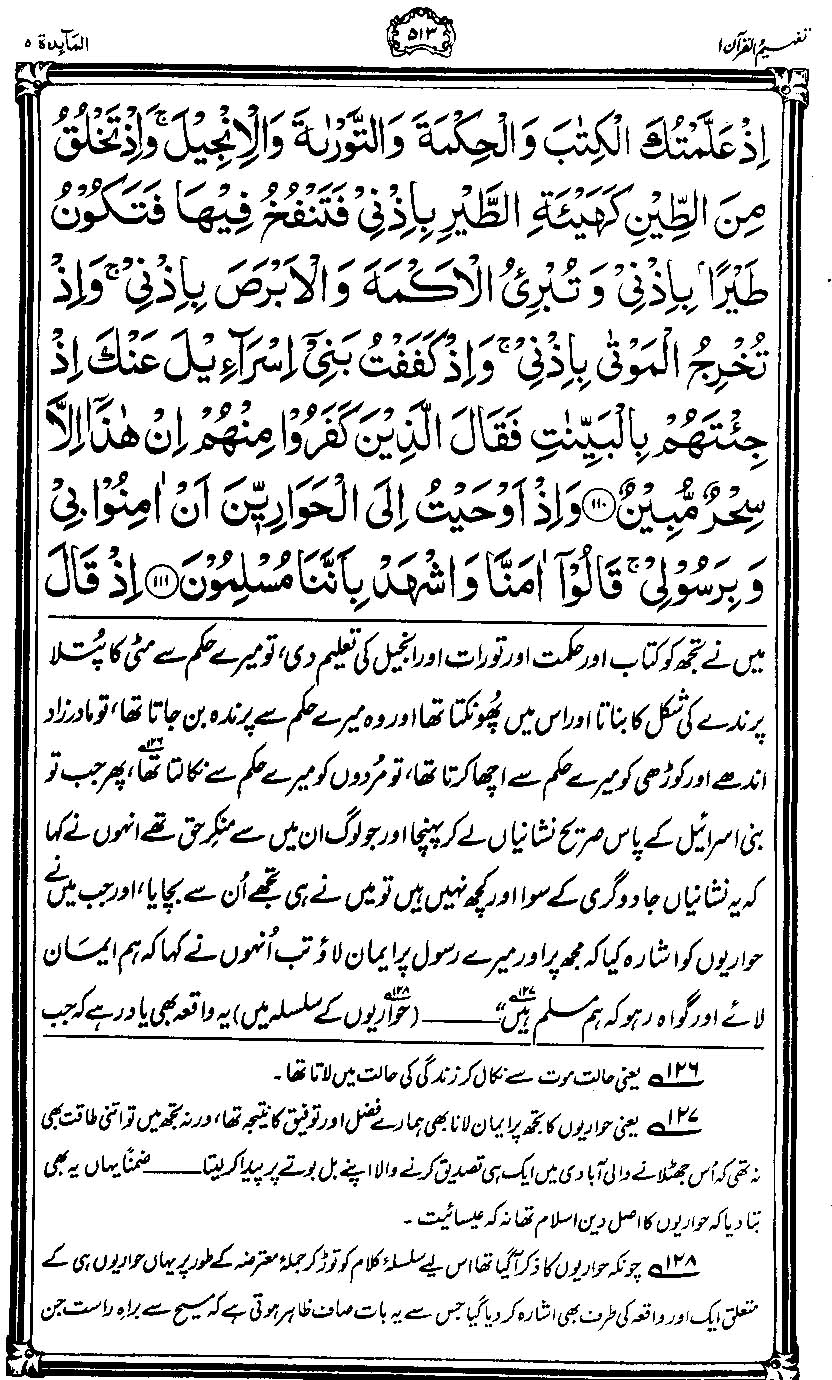 تفہیم القرآن ۱
۵۱۳
المآیدة ۵
اِذْ عَلَّمْتُكَ الْكِتٰبَ وَالْحِكْمَةَ وَالتَّوْرٰىةَ وَالْاِنْجِيْلَ ۚ وَاِذْ تَخْلُقُ
مِنَ الطِّيْنِ كَهَيْـَٔةِ الطَّيْرِ بِاِذْنِيْ فَتَنْفُخُ فِيْهَا فَتَكُوْنُ
طَيْرًۢا بِاِذْنِيْ وَتُبْرِئُ الْاَكْمَهَ وَالْاَبْرَصَ بِاِذْنِيْ ۚ وَاِذْ
تُخْرِجُ الْمَوْتٰى بِاِذْنِيْ ۚ وَاِذْ كَفَفْتُ بَنِيْٓ اِسْرَآءِيْلَ عَنْكَ اِذْ
جِئْتَهُمْ بِالْبَيِّنٰتِ فَقَالَ الَّذِيْنَ كَفَرُوْا مِنْهُمْ اِنْ هٰذَآ اِلَّا
سِحْرٌ مُّبِيْنٌ ۝۱۱۰ وَاِذْ اَوْحَيْتُ اِلَى الْحَوَارِيّٖنَ اَنْ اٰمِنُوْا بِيْ
وَبِرَسُوْلِيْ ۚ قَالُوْٓا اٰمَنَّا وَاشْهَدْ بِاَنَّنَا مُسْلِمُوْنَ ۝۱۱۱ اِذْ قَالَ
میں نے تجھ کو کتاب اور حکمت اور تورات اور انجیل کی تعلیم دی، تو میرے حکم سے مٹی کا پُتلا
پرندے کی شکل کا بناتا اور اس میں پھُونکتا تھا اور وہ میرے حکم سے پرندہ بن جاتا تھا، تو مادر زاد
اندھے اور کوڑھی کو میرے حکم سے اچھا کرتا تھا، تو مُردوں کو میرے حکم سے نکالتا تھا۱۲۶، پھر جب تو
بنی اسرائیل کے پاس صریح نشانیاں لے کر پہنچا اور جو لوگ ان میں سے منکرِ حق تھے انہوں نے کہا
کہ یہ نشانیاں جادوگری کے سوا اور کچھ نہیں ہیں تو میں نے ہی تجھے اُن سے بچایا، اور جب میں نے
حواریوں کو اشارہ کیا کہ مجھ پر اور میرے رسول پر ایمان لاؤ تب اُنہوں نے کہا کہ ہم ایمان
لائے اور گواہ رہو کہ ہم مسلم ہیں۱۲۷“ ——— (حواریوں۱۲۸ کے سلسلہ میں) یہ واقعہ بھی یاد رہے کہ جب
۱۲۶ یعنی حالت موت سے نکال کر زندگی کی حالت میں لاتا تھا۔
۱۲۷ یعنی حواریوں کا تجھ پر ایمان لانا بھی ہمارے فضل اور توفیق کا نتیجہ تھا، ورنہ تجھ میں تو اتنی طاقت بھی
نہ تھی کہ اُس جھٹلانے والی آبادی میں ایک ہی تصدیق کرنے والا اپنے بل بوتے پر پیدا کر لیتا ——— ضمنًا یہاں یہ بھی
بتا دیا کہ حواریوں کا اصل دین اسلام تھا نہ کہ عیسائیت۔
۱۲۸ چونکہ حواریوں کا ذکر آ گیا تھا اس لیے سلسلۂ کلام کو توڑ کر جملۂ معترضہ کے طور پر یہاں حواریوں ہی کے
متعلق ایک اور واقعہ کی طرف بھی اشارہ کر دیا گیا جس سے یہ بات صاف ظاہر ہوتی ہے کہ مسیح سے براہِ راست جن